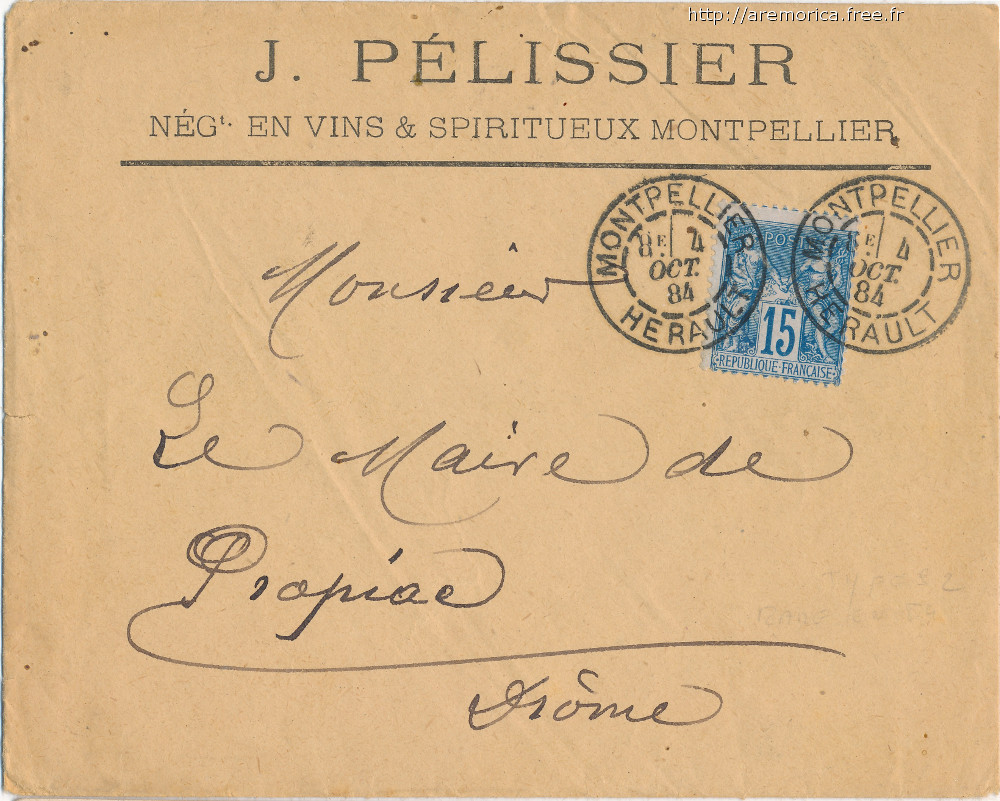 http://aremorica.free.fr
J. PÉLISSIER
NÉGt. EN VINS & SPIRITUEUX MONTPELLIER
MONTPELLIER
8E 4
OCT.
84
HERAULT
MONTPELLIER
E 4
OCT.
84
HERAULT
POSTE
15
REPUBLIQUE FRANÇAISE
Monsieur
Le Maire de
Propiac
Drôme